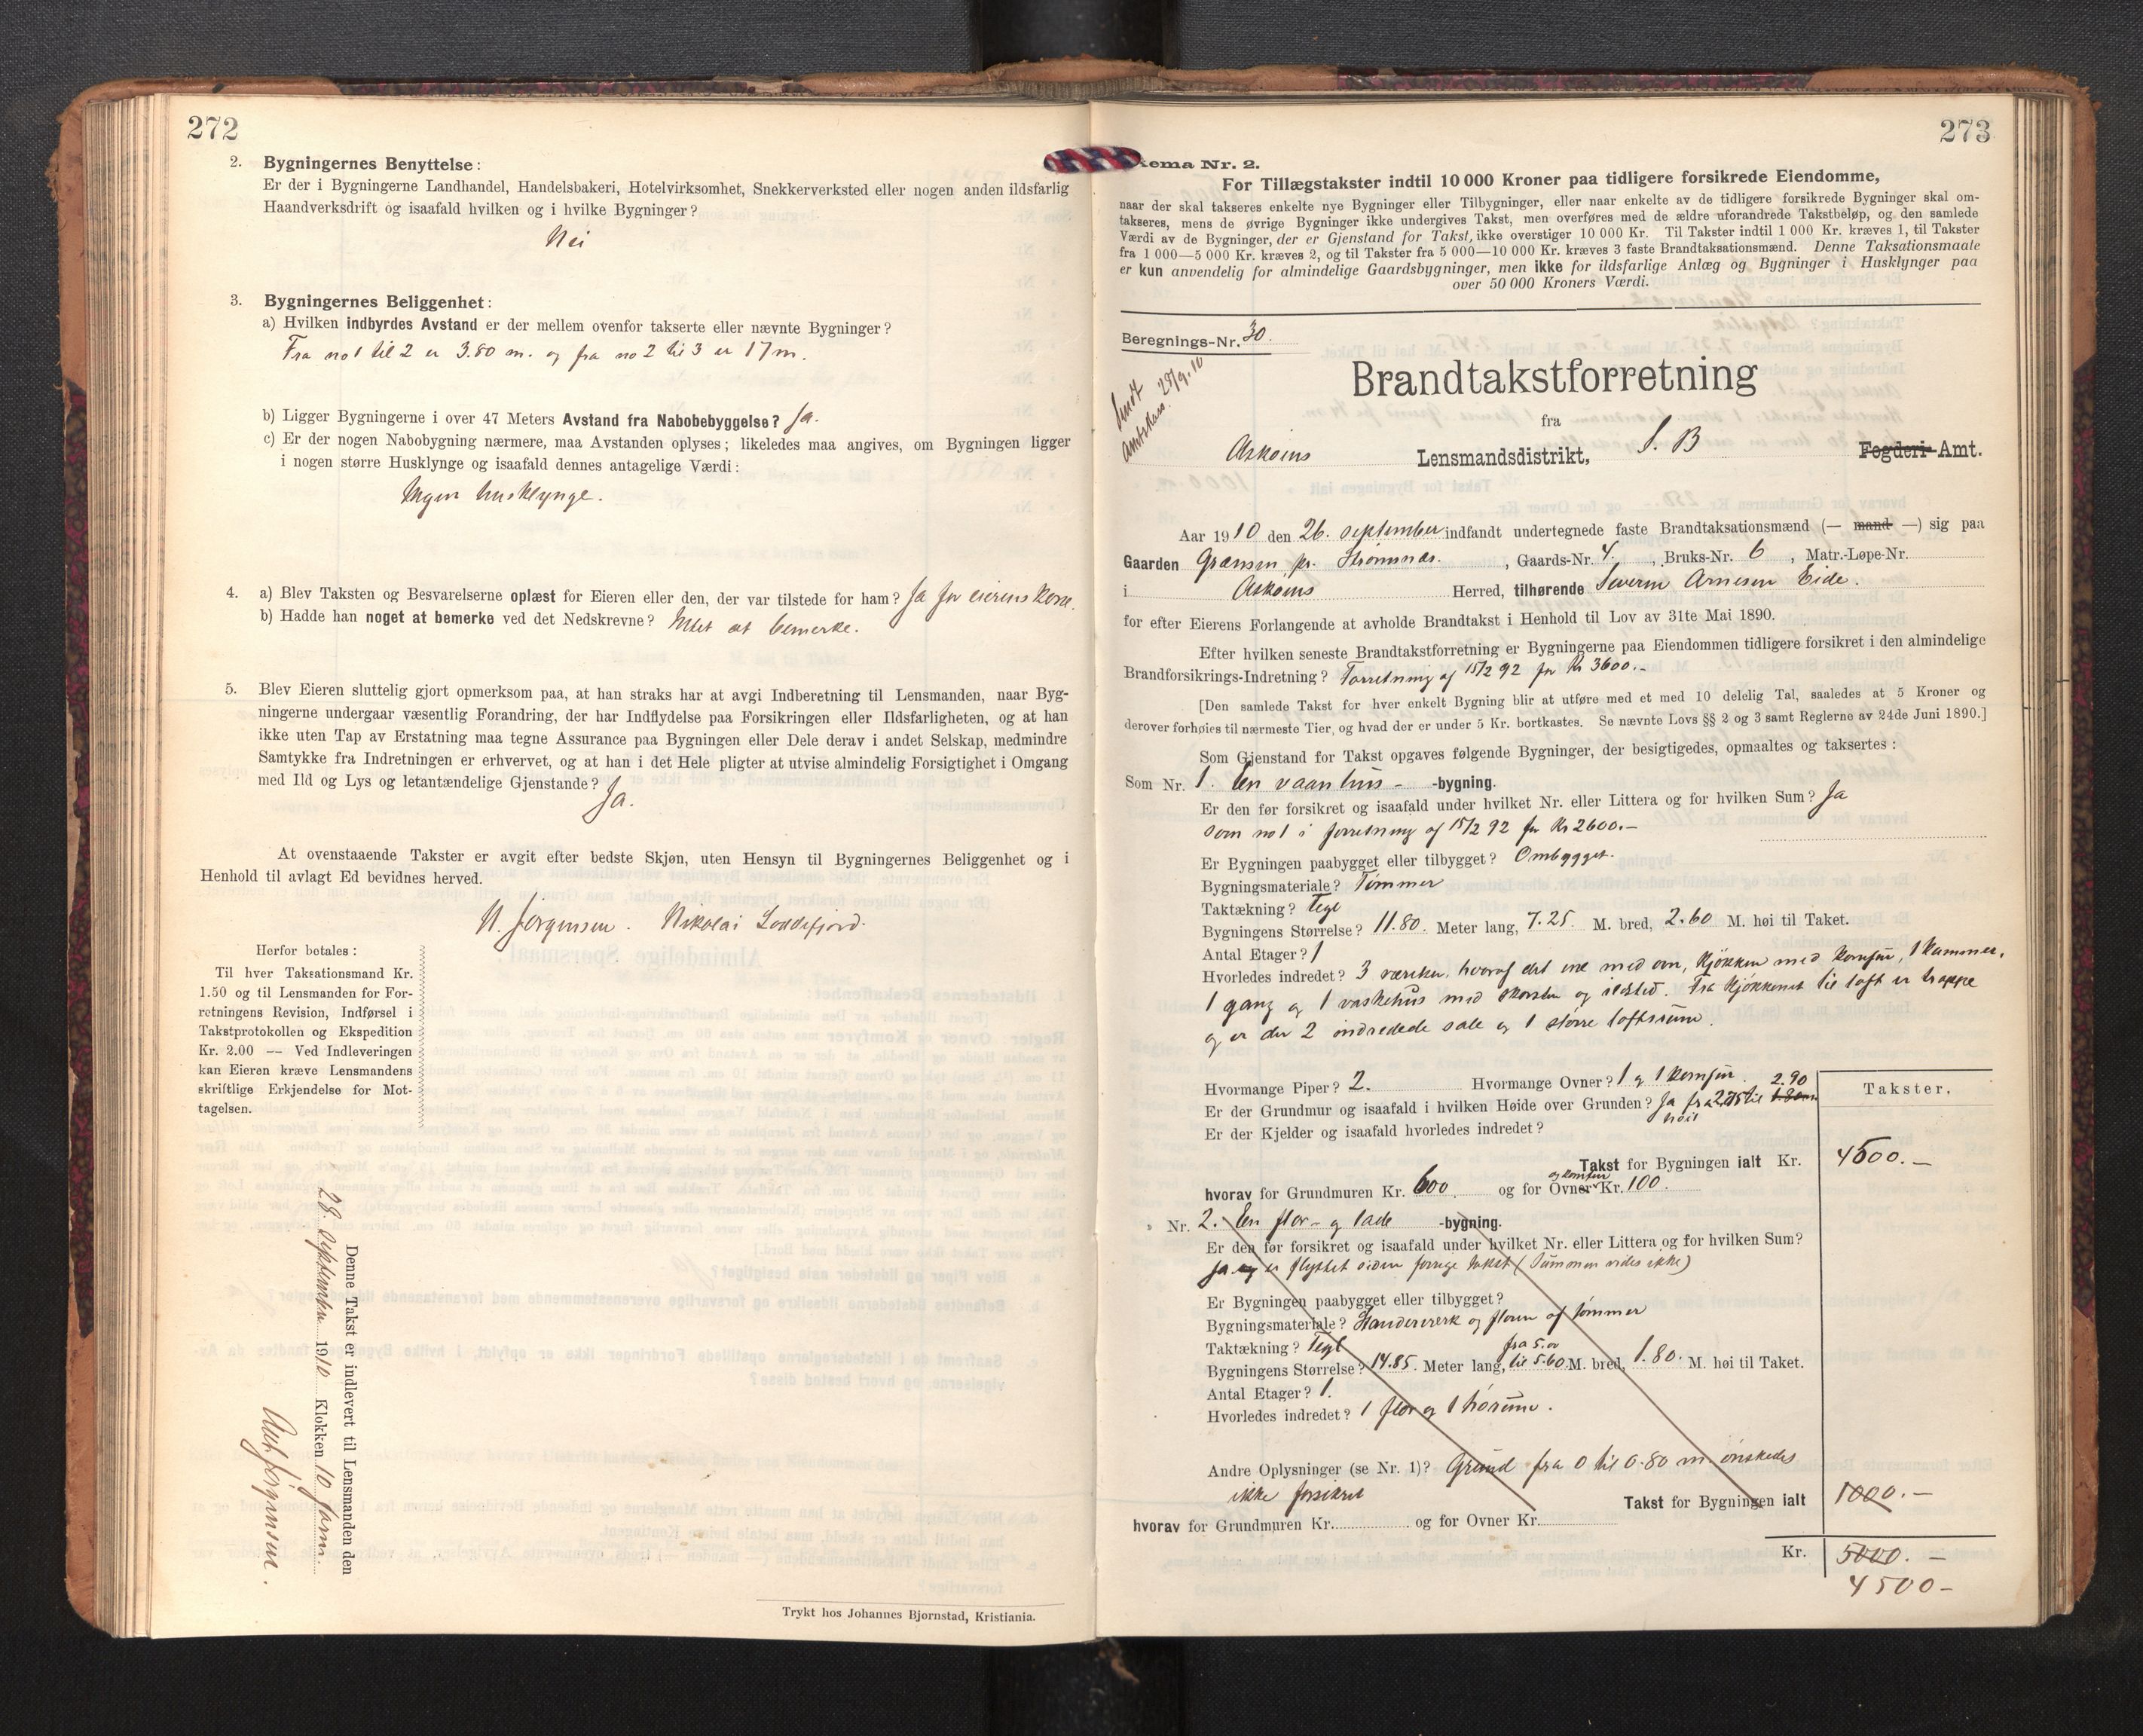 272
2. Bygningernes Benyttelse:
Er der i Bygningerne Landhandel, Handelsbakeri, Hotelvirksomhet, Snekkerverksted eller nogen anden ildsfarlig
Haandverksdrift og isaafald hvilken og i hvilke Bygninger?
Nei
3. Bygningernes Beliggenhet:
a) Hvilken indbyrdes Avstand er der mellem ovenfor takserte eller nævnte Bygninger?
Fra no 1 til 2 er 3.80 m. og fra no 2 til 3 er 17 m.
b) Ligger Bygningerne i over 47 Meters Avstand fra Nabobebyggelse? Ja.
c) Er der nogen Nabobygning nærmere, maa Avstanden oplyses; likeledes maa angives, om Bygningen ligger
i nogen større Husklynge og isaafald dennes antagelige Værdi:
Ingen husklynge.
4. a) Blev Taksten og Besvarelserne oplæst for Eieren eller den, der var tilstede for ham? Ja for eierens kone.
b) Hadde han noget at bemerke ved det Nedskrevne? Intet at bemerke.
5. Blev Eieren sluttelig gjort opmerksom paa, at han straks har at avgi Indberetning til Lensmanden, naar Byg-
ningerne undergaar væsentlig Forandring, der har Indflydelse paa Forsikringen eller Ildsfarligheten, og at han
ikke uten Tap av Erstatning maa tegne Assurance paa Bygningen eller Dele derav i andet Selskap, medmindre
Samtykke fra Indretningen er erhvervet, og at han i det Hele pligter at utvise almindelig Forsigtighet i Omgang
med Ild og Lys og letantændelige Gjenstande?
Ja.
At ovenstaaende Takster er avgit efter bedste Skjøn, uten Hensyn til Bygningernes Beliggenhet og i
Henhold til avlagt Ed bevidnes herved.
N. Jørgensen. Nikolai Loddefjord.
Herfor betales:
Til hver Taksationsmand Kr.
1.50 og til Lensmanden for For-
retningens Revision, Indførsel i
Takstprotokollen og Ekspedition
Kr. 2.00 — Ved Indleveringen
kan Eieren kræve Lensmandens
skriftlige Erkjendelse for Mot-
tagelsen.
Denne Takst er indlevert til Lensmanden den
28. September 1910 Klokken 10 form
Trykt hos Johannes Bjørnstad, Kristiania.
273
kema Nr. 2.
For Tillægstakster indtil 10 000 Kroner paa tidligere forsikrede Eiendomme,
naar der skal takseres enkelte nye Bygninger eller Tilbygninger, eller naar enkelte av de tidligere forsikrede Bygninger skal om-
takseres, mens de øvrige Bygninger ikke undergives Takst, men overføres med de ældre uforandrede Takstbeløp, og den samlede
Værdi av de Bygninger, der er Gjenstand for Takst, ikke overstiger 10 000 Kr. Til Takster indtil 1 000 Kr. kræves 1, til Takster
fra 1 000—5 000 Kr. kræves 2, og til Takster fra 5 000—10 000 Kr. kræves 3 faste Brandtaksationsmænd. Denne Taksationsmaate
er kun anvendelig for almindelige Gaardsbygninger, men ikke for ildsfarlige Anlæg og Bygninger i Husklynger paa
over 50 000 Kroners Værdi.
Beregnings-Nr. 30.
Sendt
Amtskass. 29/9.10
Brandtakstforretning
fra
Askøins Lensmandsdistrikt, S. B Fogderi-Amt.
Aar 1910 den 26. september indfandt undertegnede faste Brandtaksationsmænd (— mand —) sig paa
Gaarden Grænsen pr. Strømsnæs., Gaards-Nr. 4., Bruks-Nr. 6, Matr.-Løpe-Nr.
i Askøins Herred, tilhørende Severin Arnesen Eide.
for efter Eierens Forlangende at avholde Brandtakst i Henhold til Lov av 31te Mai 1890.
Efter hvilken seneste Brandtakstforretning er Bygningerne paa Eiendommen tidligere forsikret i den almindelige
Brandforsikrings-Indretning? Forretning af 15/2 92 for Kr 3600.-
[Den samlede Takst for hver enkelt Bygning blir at utføre med et med 10 delelig Tal, saaledes at 5 Kroner og
derover forhøies til nærmeste Tier, og hvad der er under 5 Kr. bortkastes. Se nævnte Lovs §§ 2 og 3 samt Reglerne av 24de Juni 1890.]
Som Gjenstand for Takst opgaves følgende Bygninger, der besigtigedes, opmaaltes og taksertes:
Som Nr. 1. En vaanhus- -bygning.
Er den før forsikret og isaafald under hvilket Nr. eller Littera og for hvilken Sum? Ja
som no 1 i forretning af 15/2 92 for Kr 2600.-
Er Bygningen paabygget eller tilbygget? Ombygget.
Bygningsmateriale? Tømmer
Taktækning? Tegl
Bygningens Størrelse? 11.80. Meter lang, 7.25. M. bred, 2.60 M. høi til Taket.
Antal Etager? 1
Hvorledes indredet? 3 værelser, hvoraf det ene med ovn, kjøkken med komfur, 1 kammer,
1 gang og 1 vaskehus med skorsten og ildsted. Fra kjøkkenet til loft er trappe
og er der 2 indredede sale og 1 større loftsrum.
Hvormange Piper? 2. Hvormange Ovner? 1 og 1 komfur.
Er der Grundmur og isaafald i hvilken Høide over Grunden? Ja fra 2.75 til 1.80m 2.90
høit
Er der Kjelder og isaafald hvorledes indredet?
Takster.
Takst for Bygningen ialt Kr. 4500.—
hvorav for Grundmuren Kr. 600 og for Ovner og komfur Kr. 100.
Nr. 2. En flor- og lade -bygning.
Er den før forsikret og isaafald under hvilket Nr. eller Littera og for hvilken Sum?
Ja og er flyttet siden forrige takst (Summen vides ikke)
Er Bygningen paabygget eller tilbygget?
Bygningsmateriale? Standerverk og floren af tømmer
Taktækning? Tegl
Bygningens Størrelse? 14.85. Meter lang, fra 5.00 til 5.60 M. bred, 1.80. M. høi til Taket.
Antal Etager? 1.
Hvorledes indredet? 1 flor og 1 hørum.
Andre Oplysninger (se Nr. 1)? Grund fra 0 til 0.80 m. ønskedes
ikke forsikret
Takst for Bygningen ialt 1000.—
hvorav for Grundmuren Kr. og for Ovner Kr.
Kr. 5000.—
4500-